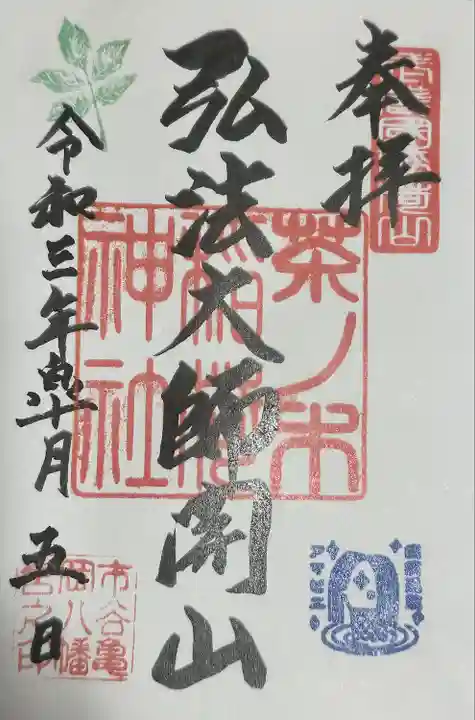 奉拝
弘法大師開山
茶ノ木
稲荷
神社
令和三年十月五日
市谷亀
岡八幡
宮之印